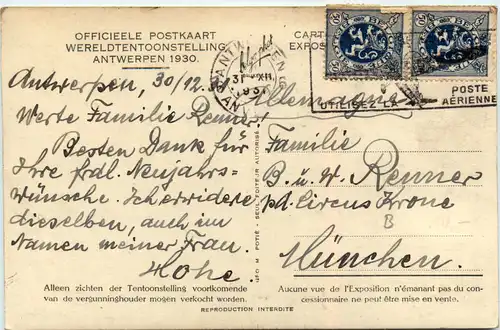 OFFICIEELE POSTKAART
WERELDTENTOONSTELLING
ANTWERPEN 1930.
CART
EXPOS
ANTWERPEN
31 XII
1931
UTILISEZ LA
POSTE
AÉRIENNE
Antwerpen, 30/12.3
Allemagne
Werte Familie Renner!
Besten Dank für
Ihre frdl. Neujahrs=
wünsche. Ich erwidere
dieselben, auch im
Namen meiner Frau.
Hohe.
Familie
B. u. W. Renner
pd. Circus Krone
B
München.
M. POTIÉ - SEUL ÉDITEUR AUTORISÉ.
Alleen zichten der Tentoonstelling voortkomende
van de vergunninghouder mogen verkocht worden.
Aucune vue de l'Exposition n'émanant pas du con-
cessionnaire ne peut être mise en vente.
REPRODUCTION INTERDITE